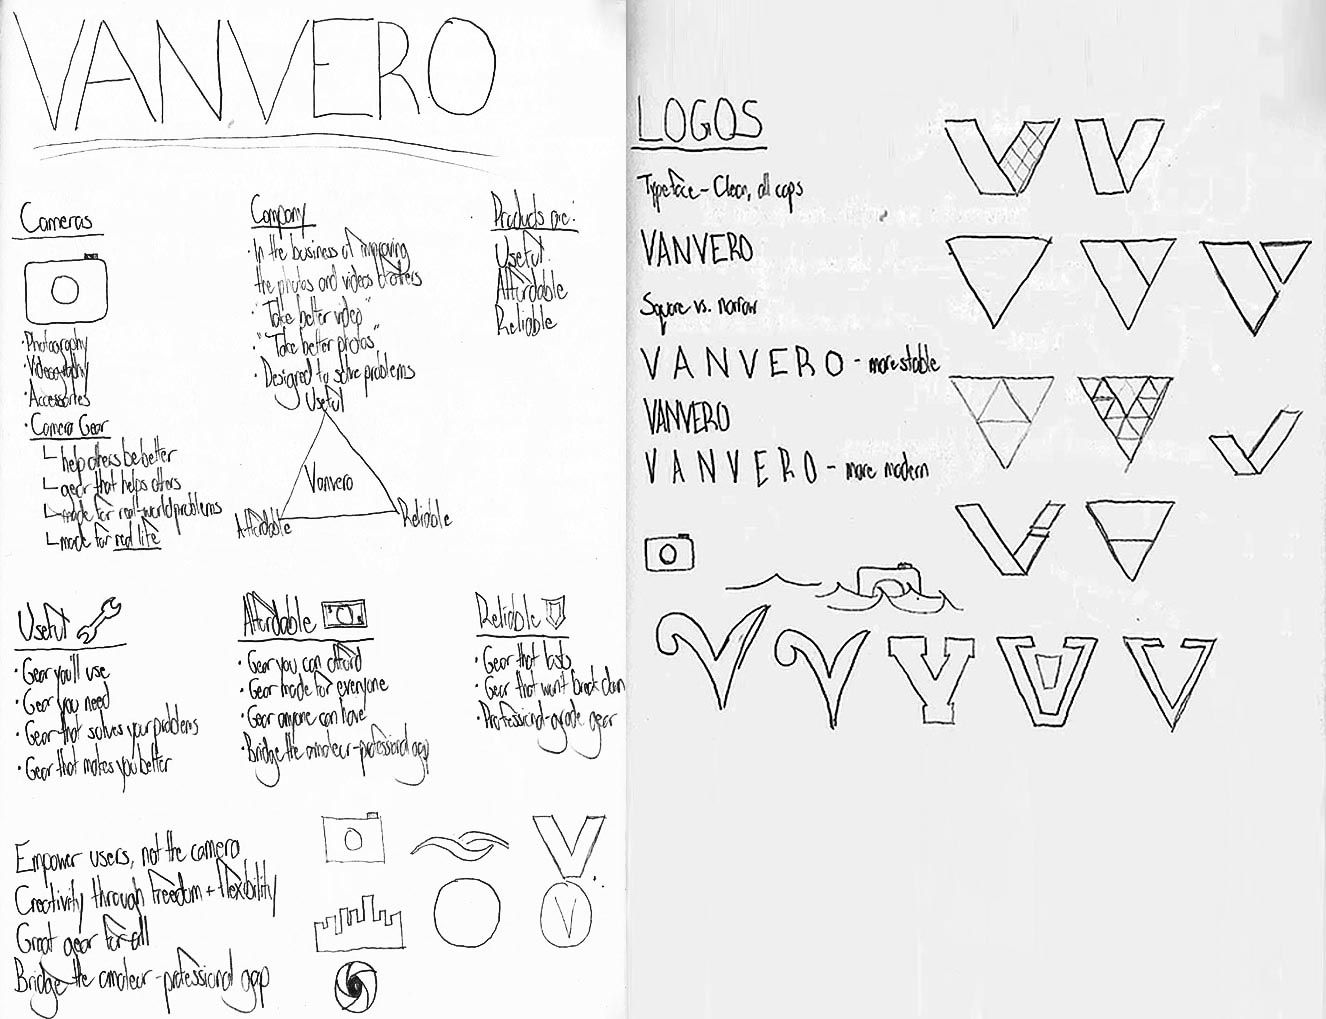 VANVERO
Cameras
• Photography
• Videography
• Accessories
• Camera Gear
help others be better
gear that helps others
made for real-world problems
made for real life
Company
• In the business of improving
the photos and videos others
• "Take better video"
• "Take better photos"
• Designed to solve problems
Useful
Vanvero
Affordable
Reliable
Products are:
Useful
Affordable
Reliable
Useful
• Gear you'll use
• Gear you need
• Gear that solves your problems
• Gear that makes you better
Affordable
• Gear you can afford
• Gear made for everyone
• Gear anyone can have
• Bridge the amateur-professional gap
Reliable
• Gear that lasts
• Gear that won't break down
• Professional-grade gear
Empower users, not the camera
Creativity through freedom + flexibility
Great gear for all
Bridge the amateur-professional gap
V
LOGOS
Typeface - Clean, all caps
VANVERO
Square vs. narrow
VANVERO - more stable
VANVERO
VANVERO - more modern